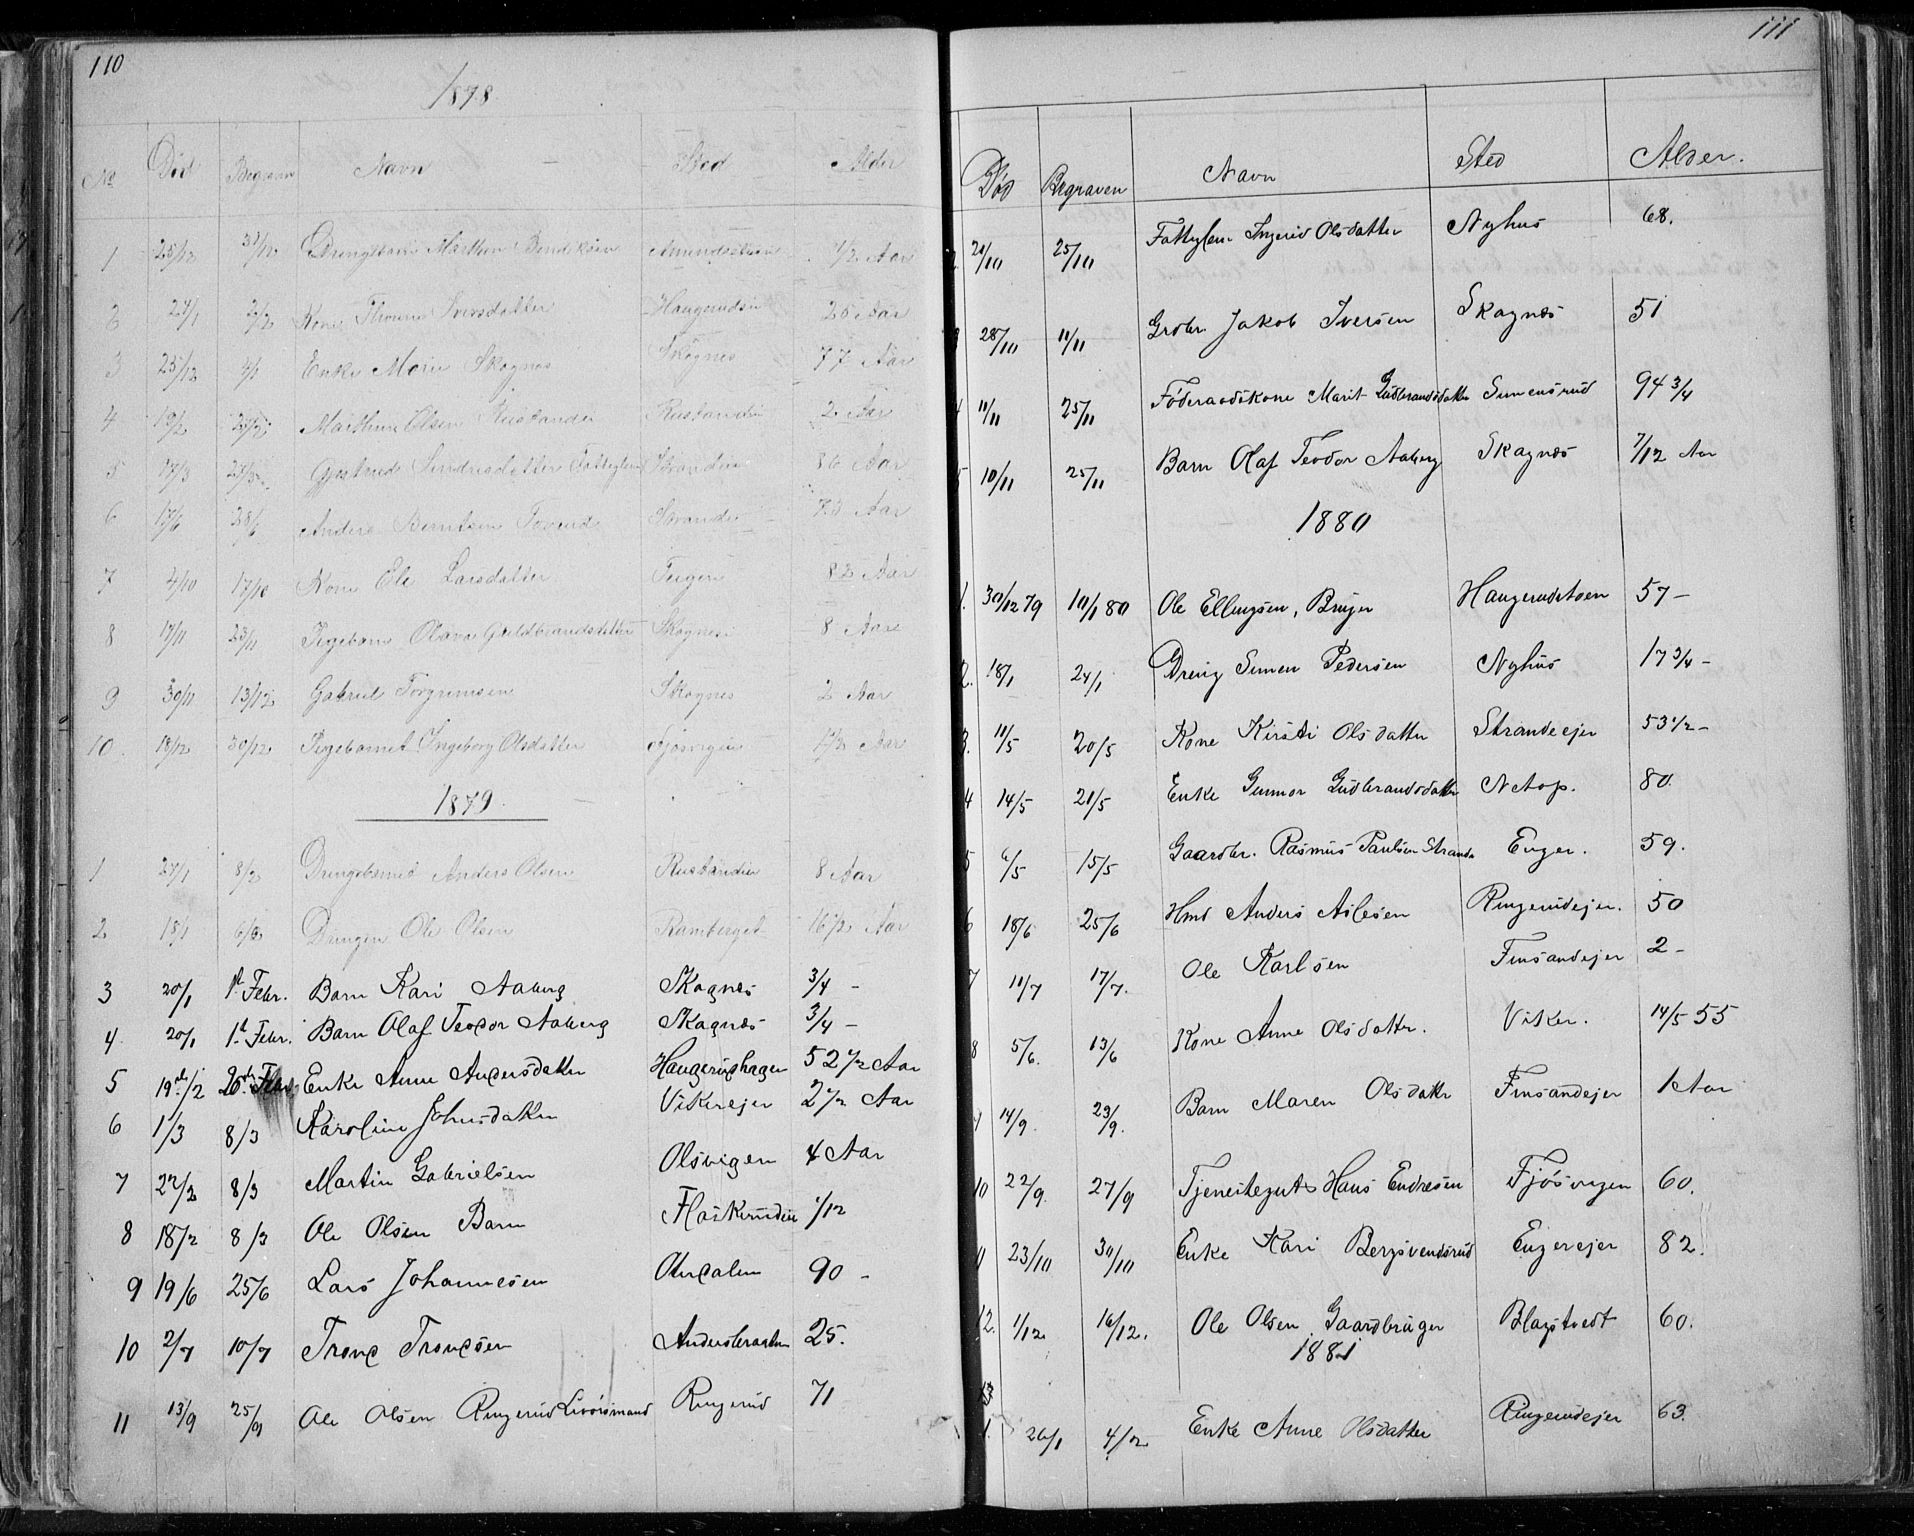 110
1878.
No Død Begravn Navn Sted Alder
1 25/12 31/12 Drengebarn Marthin Bendiksen 1/2 Aar
2 27/1 2/2 Kone Iversdatter Haugerudsei 25 Aar
3 25/12 4/1 Enke Marie Skagnes Skognes 77 Aar
4 13/2 Marthin Olsen Rustandei Rustandei 2 Aar
5 17/3 Sindresdatter Fattiglem Stranden 86 Aar
6 17/6 28/6 Anders Berntsen Strande 73 Aar
7 4/10 17/10 Kone Eli Larsdatter 82 Aar
8 17/11 23/11 Pigebarn Olava Guldbrandsdatter Skognes 8 Aar
9 30/11 13/12 Gabriel Torgrimsen Skognes 2 Aar
10. 18/12 30/12 Pigebarnet Ingeborg Olsdatter Fjøsvigen 1/2 Aar
1879.
1 27/1 8/2 Drengebarnet Anders Olsen Rustandei 8 Aar
2 18/1 6/2 Drengen Ole Olsen Ramberget 16 1/2 Aar
3 20/1 1st Febr. Barn Kari Aaberg Skagnæs 3/4 -
4 20/1 1st Febr. Barn Olaf Teodor Aaberg Skagnæs 3/4 -
5 19de/2 26de Febr Enke Anne Andersdatter Haugerudhagen 52 1/2 Aar
6 1/3 8/3 Karoline Johnsdatter Vikerejer 2 1/2 Aar
7 27/2 8/3 Martin Gabrielsen Olsvigen 4 Aar
8 18/2 8/3 Ole Olsen Barn Flaskerudei 1/12
9 19/6 25/6 Lars Johannesen Ourdalen 90 -
10 2/7 10/7 Trond Trondsen Andersbraaten 25.
11 13/9 25/9 Ole Olsen Ringerud Livørsmand Ringerud 71
111
Død Begraven Navn Sted Alder.
21/10 25/10 Fattiglem Ingerid Olsdatter Nyhus 68.
28/10 11/11 Grdbr. Jakob Iversen Skagnæs 51
11/11 25/11 Föderaadskone Marit Gudbrandsdatter Simensrud 94 3/4
10/11 25/11 Barn Olaf Teodor Aaberg Skagnæs 7/12 Aar
1880
1. 30/12 79 10/1 80 Ole Ellingsen, Bruger Haugerudstøen 57 -
2. 18/1 24/1 Dreng Simen Pedersen Nyhus 17 3/4 -
3. 11/5 20/5 Kone Kirsti Olsdatter Strandeejer 53 1/2 -
4 14/5 21/5 Enke Gunnor Gudbrandsdatter N Aop. 80.
5 6/5 15/5 Gaardbr. Rasmus Paulsen Strande Enger. 59.
6 18/6 25/6 Hmd Anders Aslesen Ringerudejer. 50
7 11/7 17/7. Ole Karlsen Finsandejer 2 -
8 5/6. 13/6 Kone Anne Olsdatter. Viker. 14/5 55
9 14/9. 23/9. Barn Maren Olsdatter Finsandejer 1 Aar
10 22/9. 27/9 Tjenestegut Hans Endresen Fjøsvigen 60.
11 23/10 30/10 Enke Kari Bergsvendsrud Engerejer 82.
12. 1/12. 16/12. Ole Olsen Gaardbruger Blagstvedt 60.
1881
1. 26/1 4/2 Enke Anne Olsdatter Ringerudejer 63.